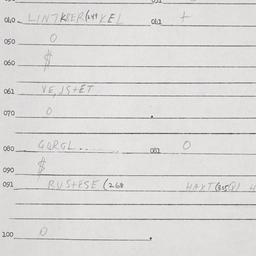 040 LINTKEER(244 KEL 061 +
050 O
060 $
061 VE,JS+ET
070 O
080 GQRGL..... 081 O
090 $
091 RUS+ESE (268 HAXT
100 O